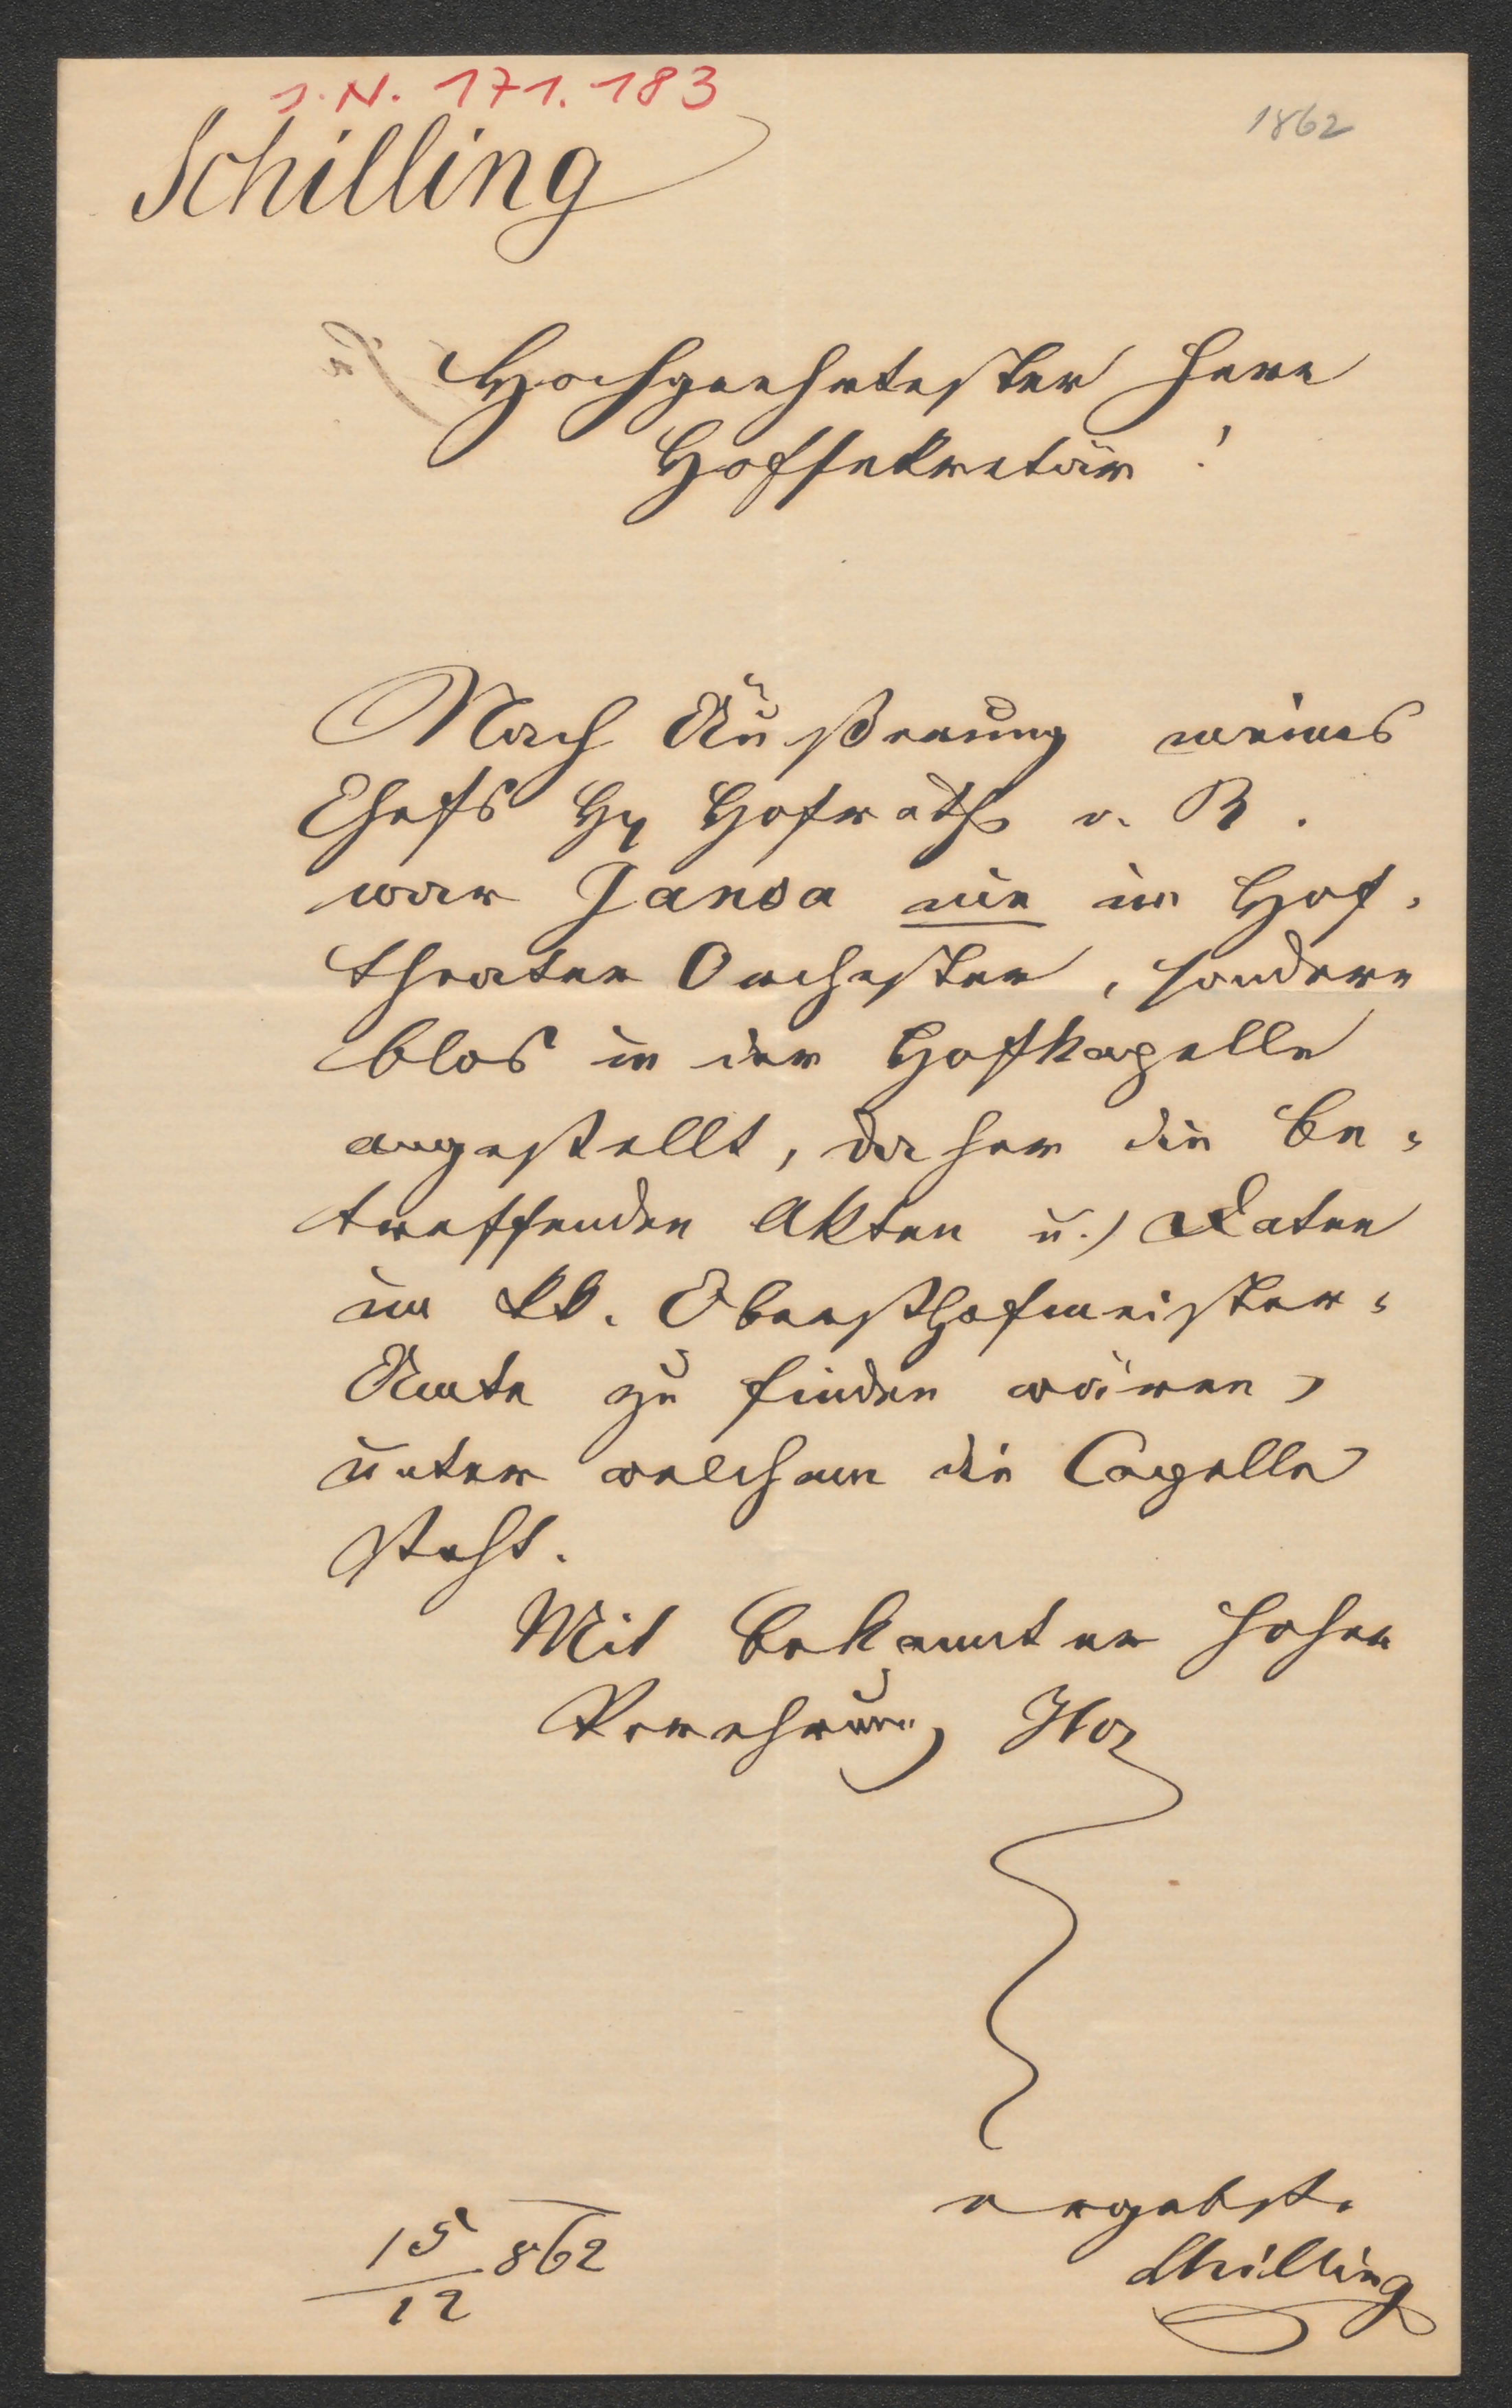 J. N. 171.183
1862
Schilling
Hochgeehrtester Herr
Hofsekretär!
Nach Äußerung meines
Chefs H Hofrath v. R.
war Jansa nie im Hof-
theater Orchester, sondern
blos in der Hofkapelle
angestellt, daher die be-
treffenden Akten u. Daten
im kk. Obersthofmeister-
Amte zu finden wären,
unter welchem die Capelle
steht.
Mit bekannter hoher
Verehrung Ihr
ergebst.
Schilling
15/12 862